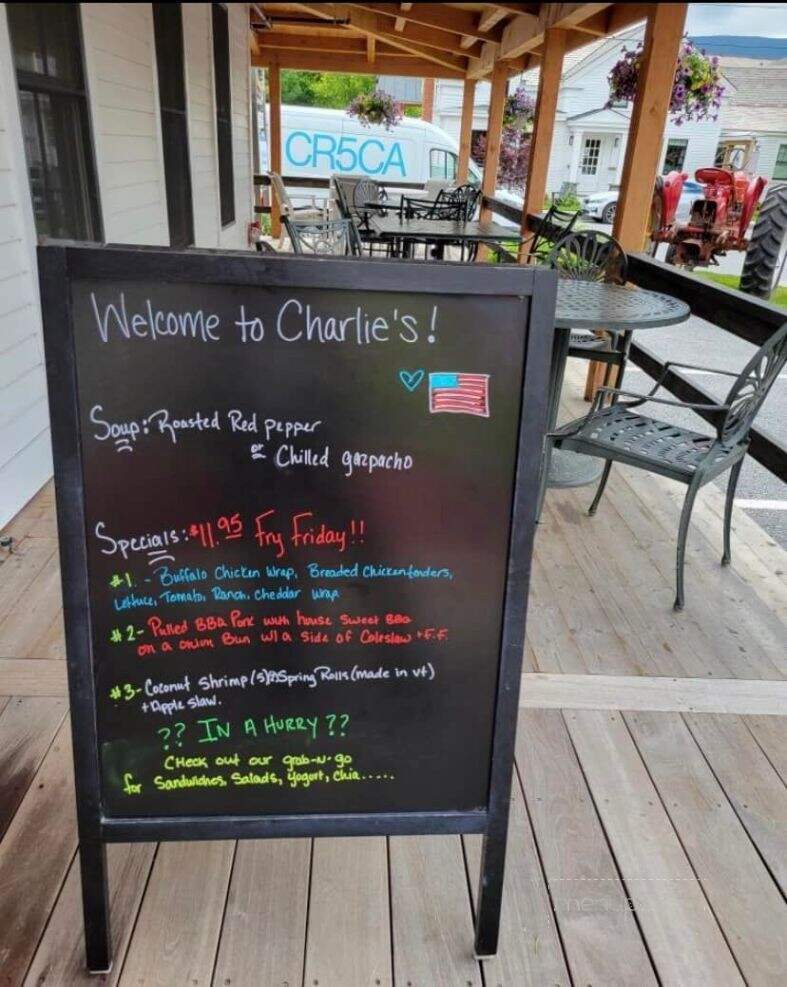 CR5CA
Welcome to Charlie's!
Soup: Roasted Red pepper
or Chilled gazpacho
Specials: $11.95 Fry Friday!!
#1. - Buffalo Chicken Wrap, Breaded Chicken tenders,
Lettuce, Tomato, Ranch, cheddar wrap
#2- Pulled BBQ Pork with house Sweet BBQ
on a onion Bun w/ a side of Coleslaw + F.F.
#3- Coconut shrimp (5) Spring Rolls (made in vt)
+ Apple slaw.
?? IN A HURRY ??
CHeck out our grab-N-go
for Sandwiches, Salads, yogurt, chia.....